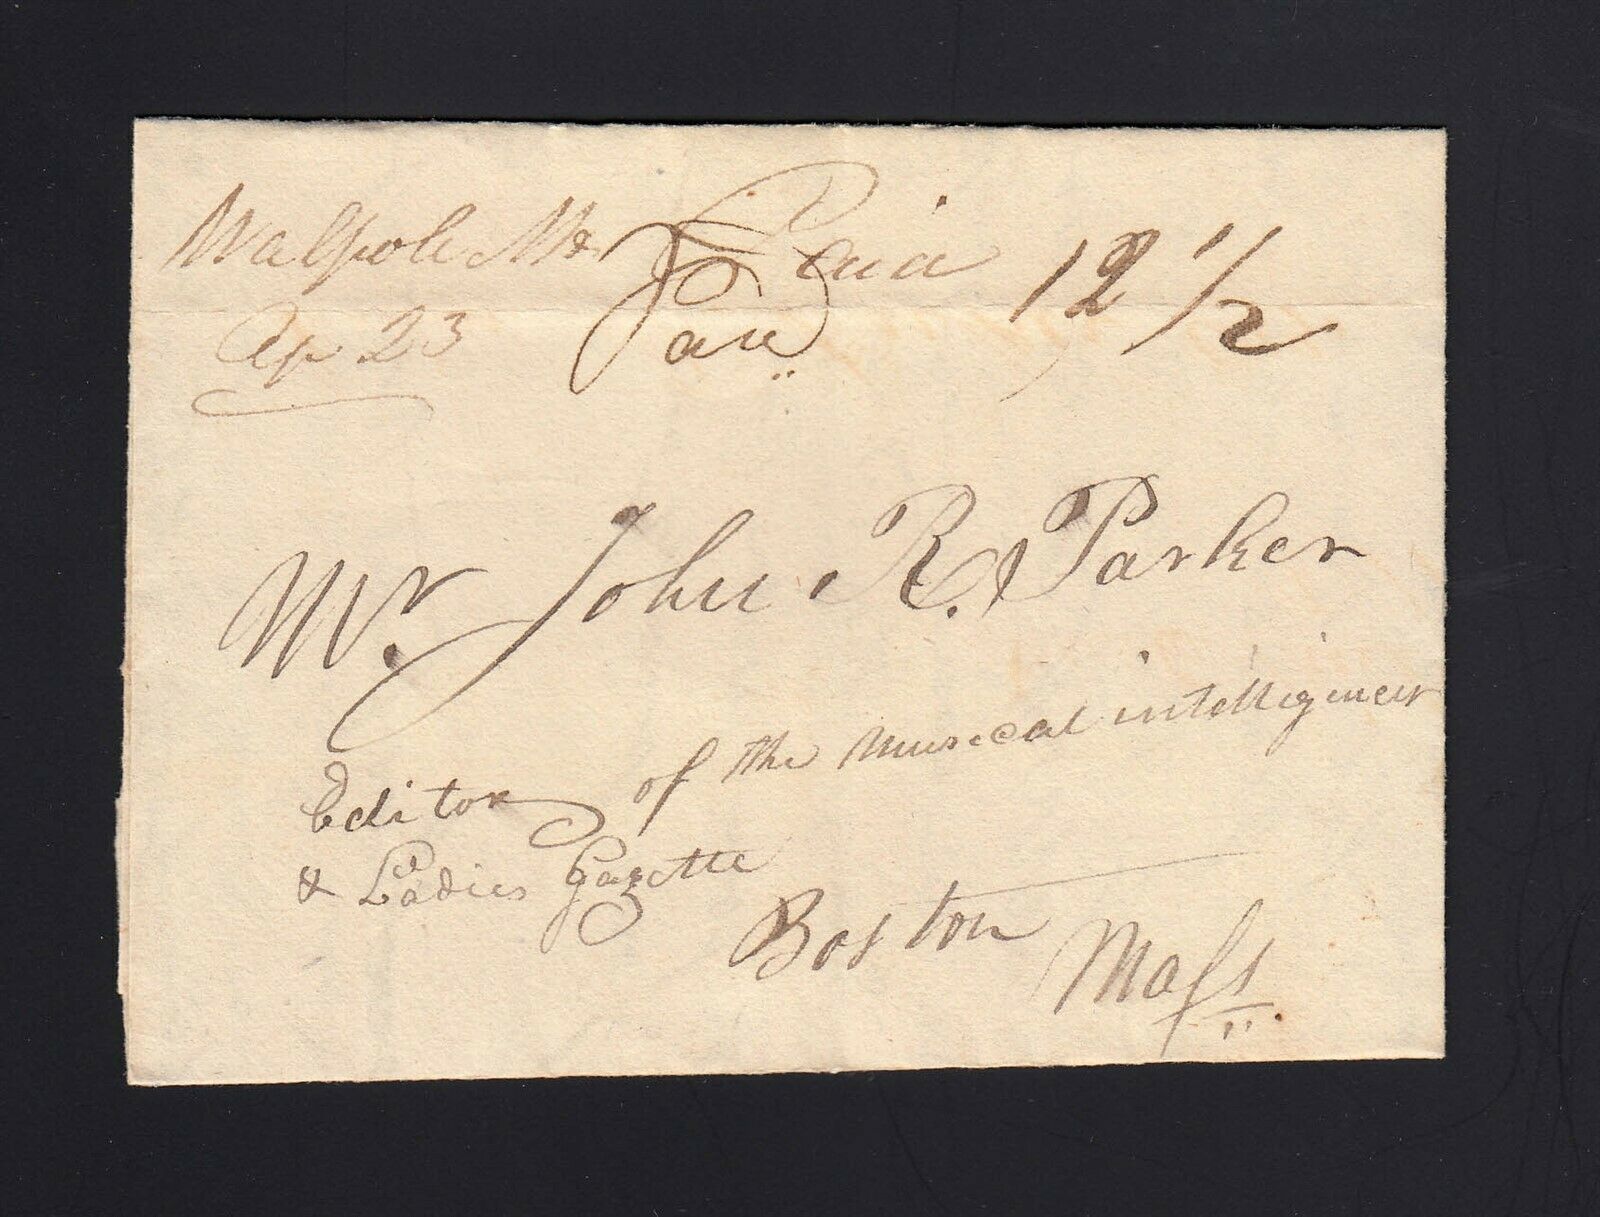 Walpole Me Paid 12 1/2
Ap 23 Paid
Mr. John R. Parker
Editor of the Musical intelligincer
& Ladies Gazette
Boston Mass.